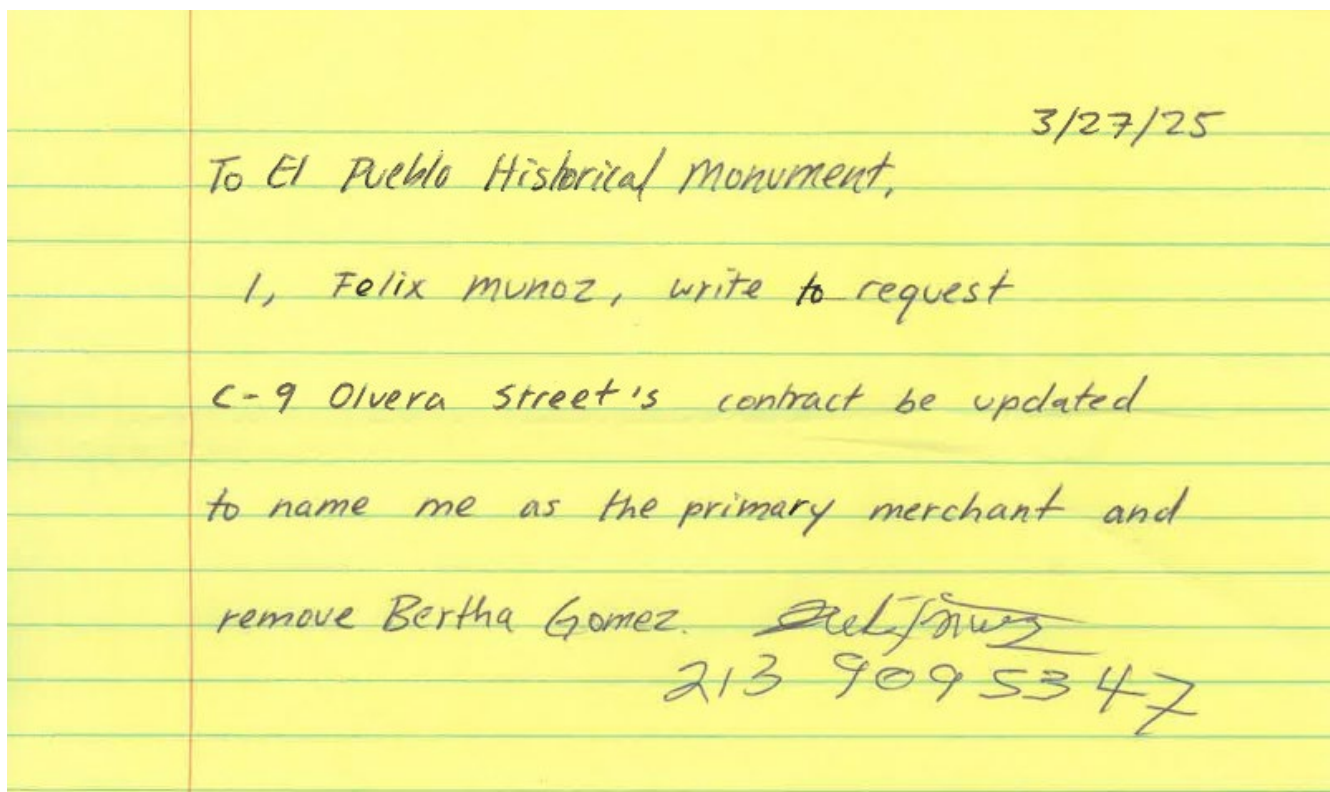 3/27/25
To El Pueblo Historical Monument,
I, Felix Munoz, write to request
C-9 Olvera Street's contract be updated
to name me as the primary merchant and
remove Bertha Gomez.
213 909 5347